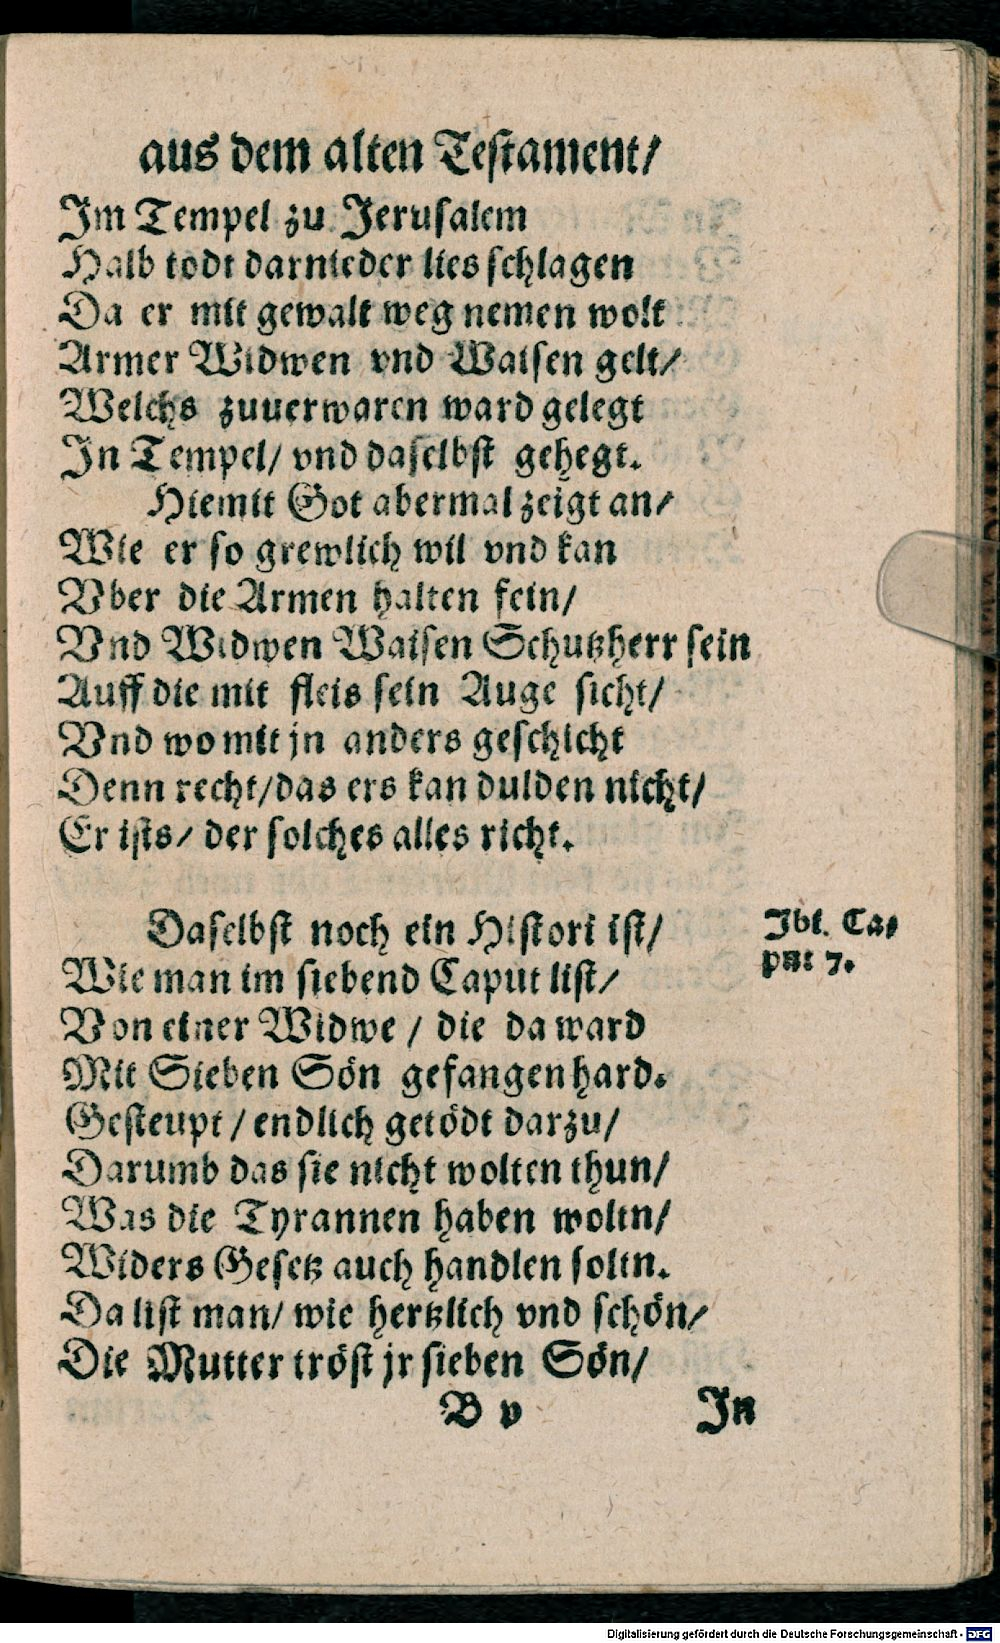 aus dem alten Testament/
Im Tempel zu Jerusalem
Halb todt darnieder lies schlagen
Da er mit gewalt weg nemen wolt
Armer Widwen vnd Waisen gelt/
Welchs zuuerwaren ward gelegt
In Tempel/ vnd daselbst gehegt.
Hiemit Got abermal zeigt an/
Wie er so grewlich wil vnd kan
Vber die Armen halten fein/
Vnd Widwen Waisen Schutzherr sein
Auff die mit fleis sein Auge sicht/
Vnd wo mit jn anders geschicht
Denn recht/das ers kan dulden nicht/
Er ists/ der solches alles richt.
Daselbst noch ein Histori ist/
Ibi. Ca-
Wie man im siebend Caput list/
put 7.
Von einer Widwe / die da ward
Mit Sieben Sön gefangen hard.
Gesteupt / endlich getödt darzu/
Darumb das sie nicht wolten thun/
Was die Tyrannen haben woltn/
Widers Gesetz auch handlen soltn.
Da list man/ wie hertzlich vnd schön/
Die Mutter tröst jr sieben Sön/
B v In
Digitalisierung gefördert durch die Deutsche Forschungsgemeinschaft - DFG